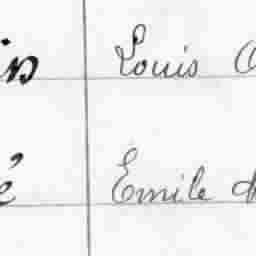 in Louis
é Emile